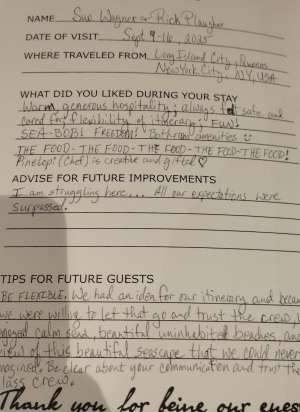 NAME Sue Wagner & Rich Plaugher
DATE OF VISIT Sept 9-16, 2025
WHERE TRAVELED FROM Long Island City, Queens
New York City, NY, USA
WHAT DID YOU LIKED DURING YOUR STAY
Warm, generous hospitality; always felt safe and
cared for; flexibility of itinerary; FUN!
SEA-BOBS FREEDOM! Bathroom amenities
THE FOOD-THE FOOD-THE FOOD-THE FOOD-THE FOOD!
Pinelopi (Chef) is creative and gifted
ADVISE FOR FUTURE IMPROVEMENTS
I am struggling here... All our expectations were
surpassed.
TIPS FOR FUTURE GUESTS
BE FLEXIBLE. We had an idea for our itinerary and becau
we were willing to let that go and trust the crew,
enjoyed calm seas, beautiful uninhabited beaches, an
view of this beautiful seascape that we could never
imagined. Be clear about your communication and trust the
class crew.
Thank you for being our gues